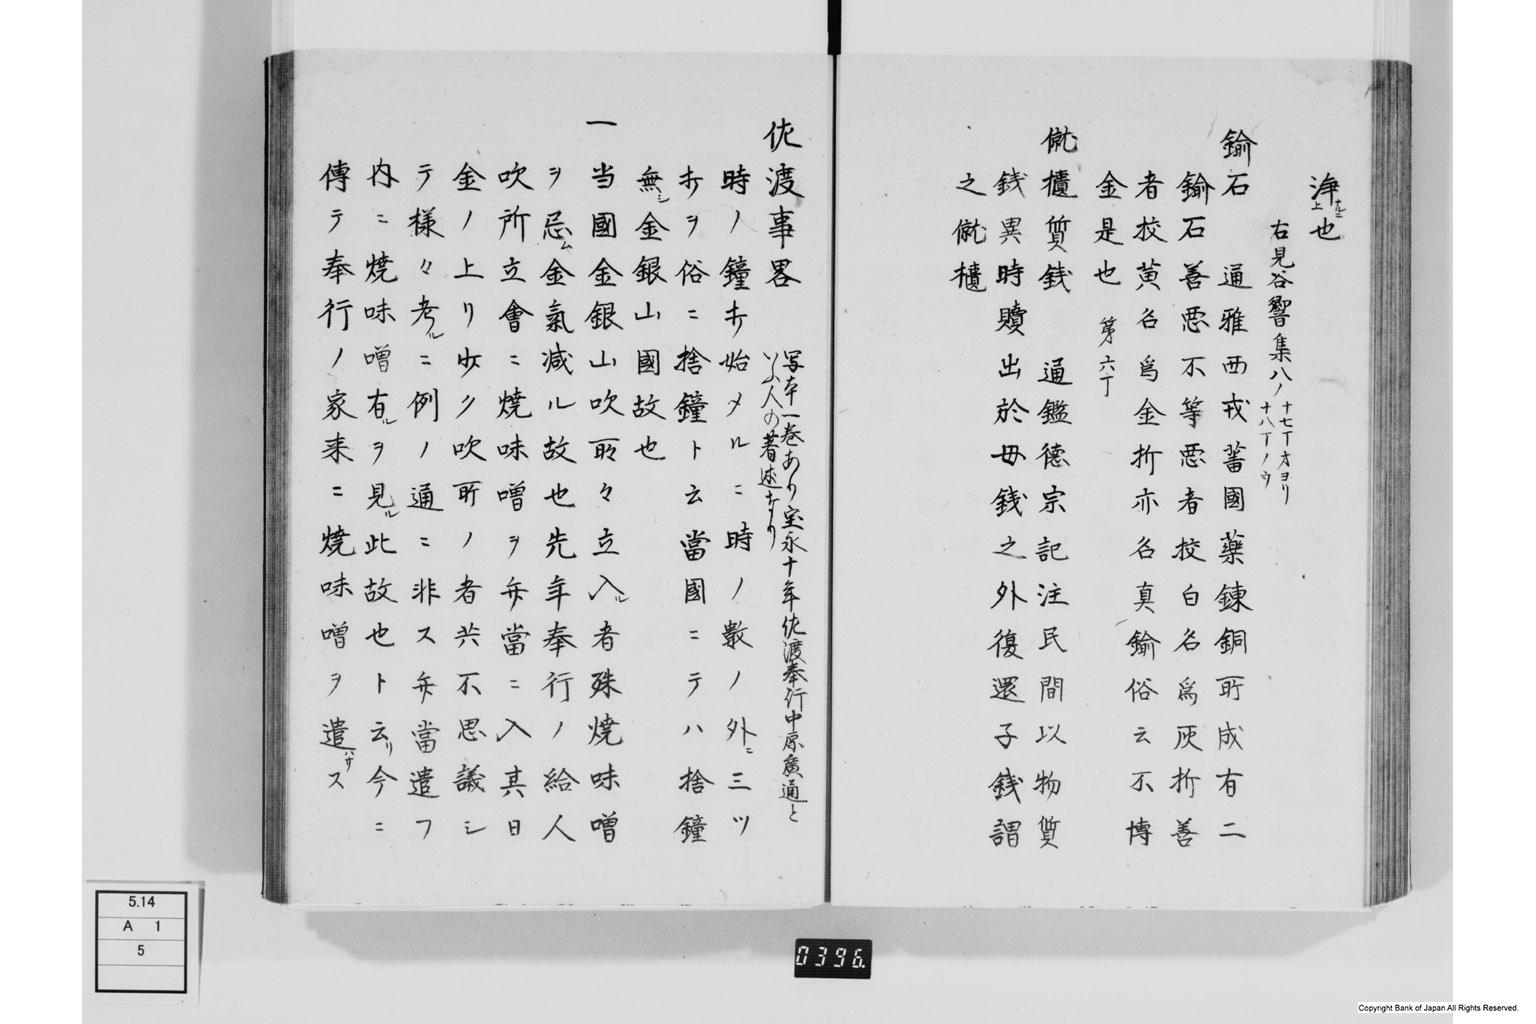 浄上也
右見谷響集八ノ十七丁オヨリ
十八丁ノウ
鍮石　通雅西戎蕃國藥錬銅所成有二
鍮石善悪不等悪者校白名為灰折善
者校黄名為金折亦名真鍮俗云不博
金是也　第六丁
僦櫃質銭　通鑑德宗記注民間以物質
銭異時贖出於母銭之外復還子銭謂
之僦櫃
佐渡事畧　写本一巻あり宝永十年佐渡奉行中原廣通と
いふ人の著述なり
時ノ鐘ヲ始メルニ時ノ數ノ外ニ三ツ
ヲ俗ニ捨鐘ト云當國ニテハ捨鐘
無シ金銀山國故也
一　当國金銀山吹所々立入ル者殊焼味噌
ヲ忌ム金氣減ル故也先年奉行ノ給人
吹所立會ニ焼味噌ヲ弁當ニ入其日
金ノ上リ少ク吹所ノ者共不思議シ
テ様々考ルニ例ノ通ニ非ス弁當遣フ
内ニ焼味噌有ルヲ見ル此故也ト云リ今ニ
傳テ奉行ノ家来ニ焼味噌ヲ遣ハサス
5.14
A 1
5
0396.
Copyright Bank of Japan All Rights Reserved.